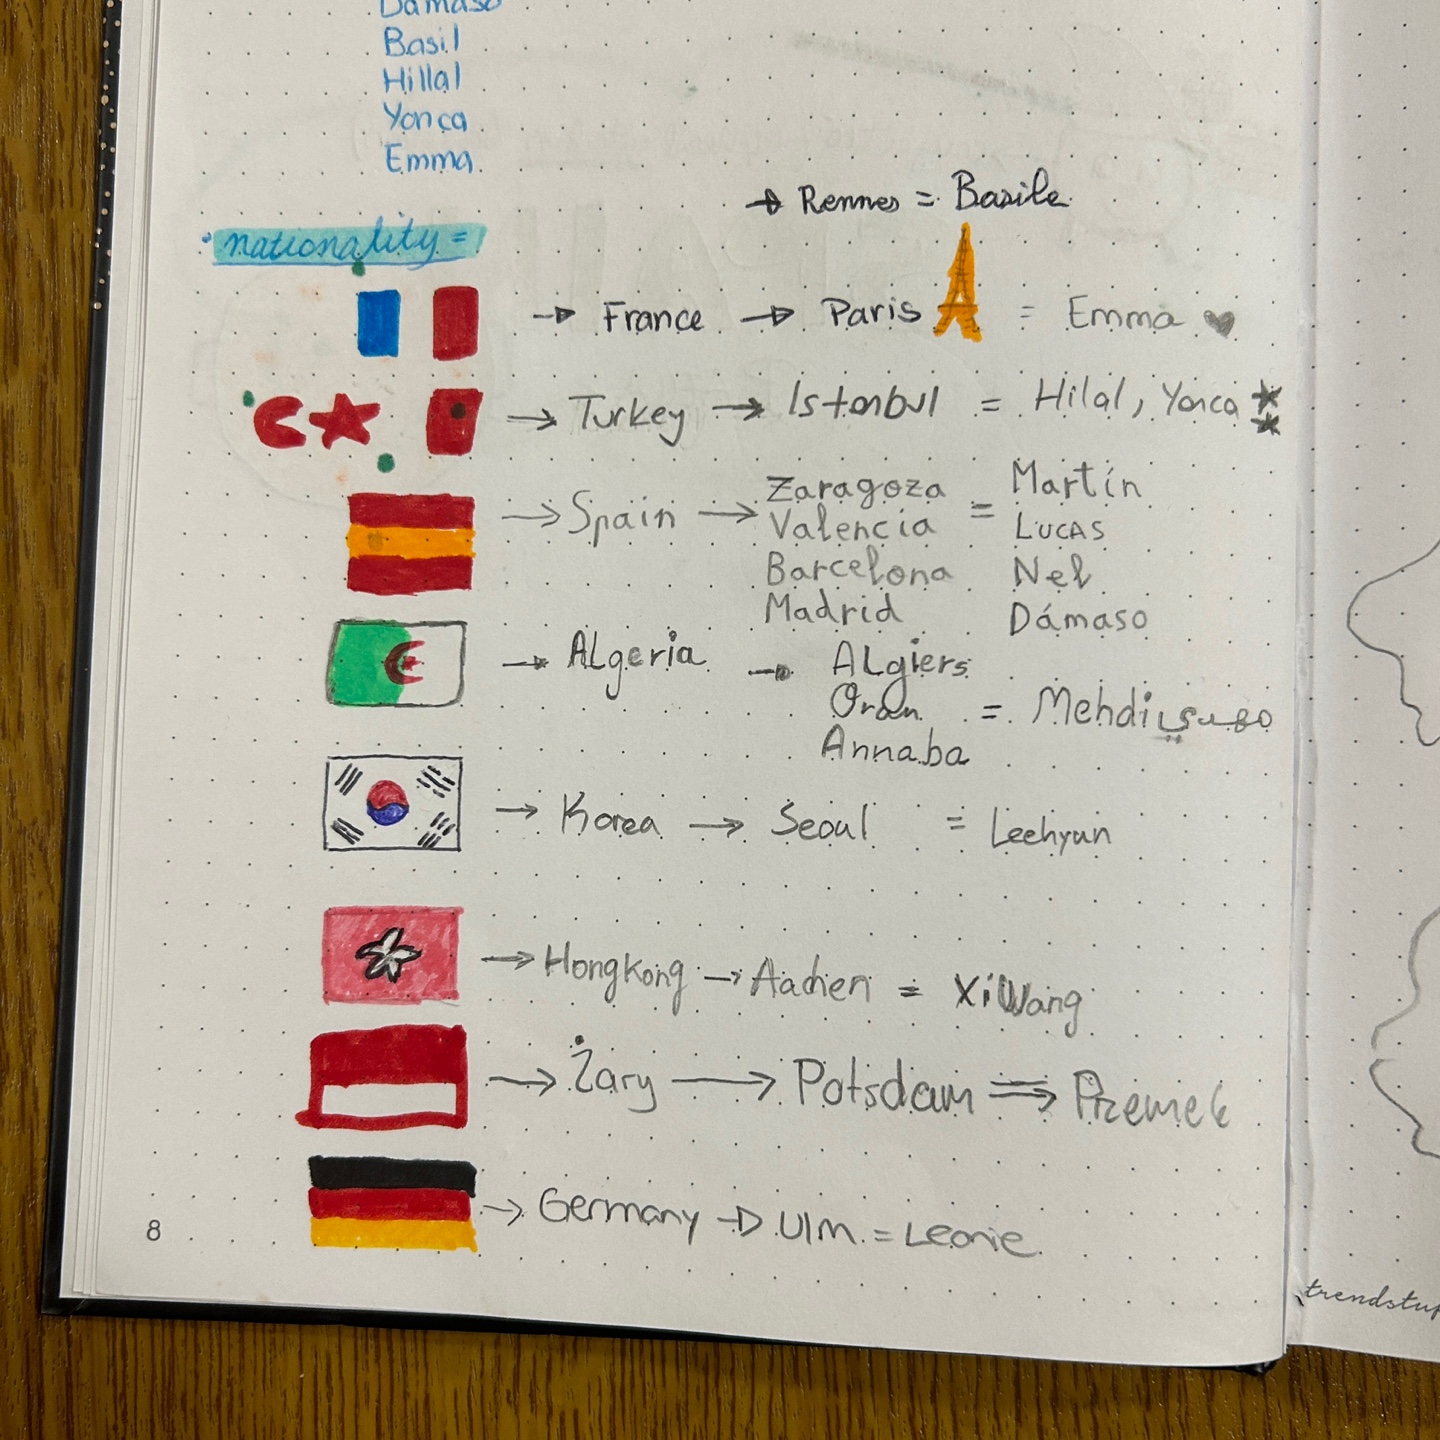 Dámaso
Basil
Hillal
Yonca
Emma
→ Rennes = Basile
nationality =
→ France → Paris = Emma ♥
→ Turkey → Istanbul = Hilal, Yonca
→ Spain → Zaragoza = Martín
Valencia LUCAS
Barcelona Nel
Madrid Dámaso
→ Algeria → Algiers
Oran = Mehdi
Annaba
→ Korea → Seoul = Leehyun
→ HongKong → Aachen = XiWang
→ Żary → Potsdam ⇒ Przemek
→ Germany → Ulm = Leonie
8